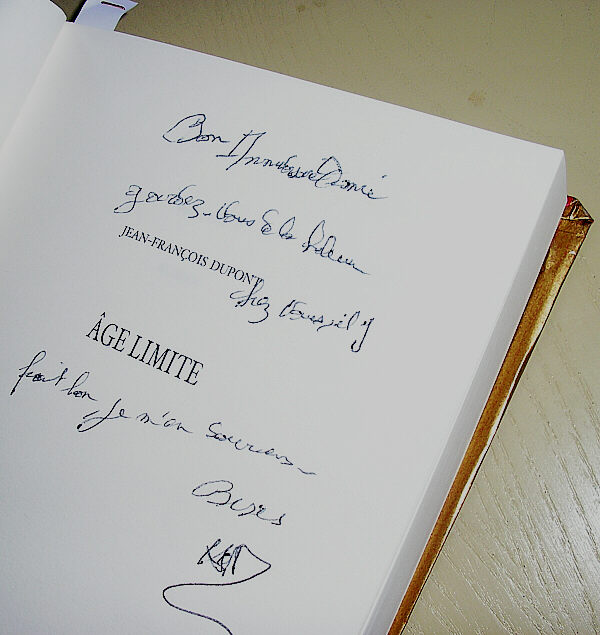 Bon Anniversaire Domi
gardez-vous de la
JEAN-FRANÇOIS DUPONT
chez vous, il y
ÂGE LIMITE
fait bon, je m'en souviens
Bises